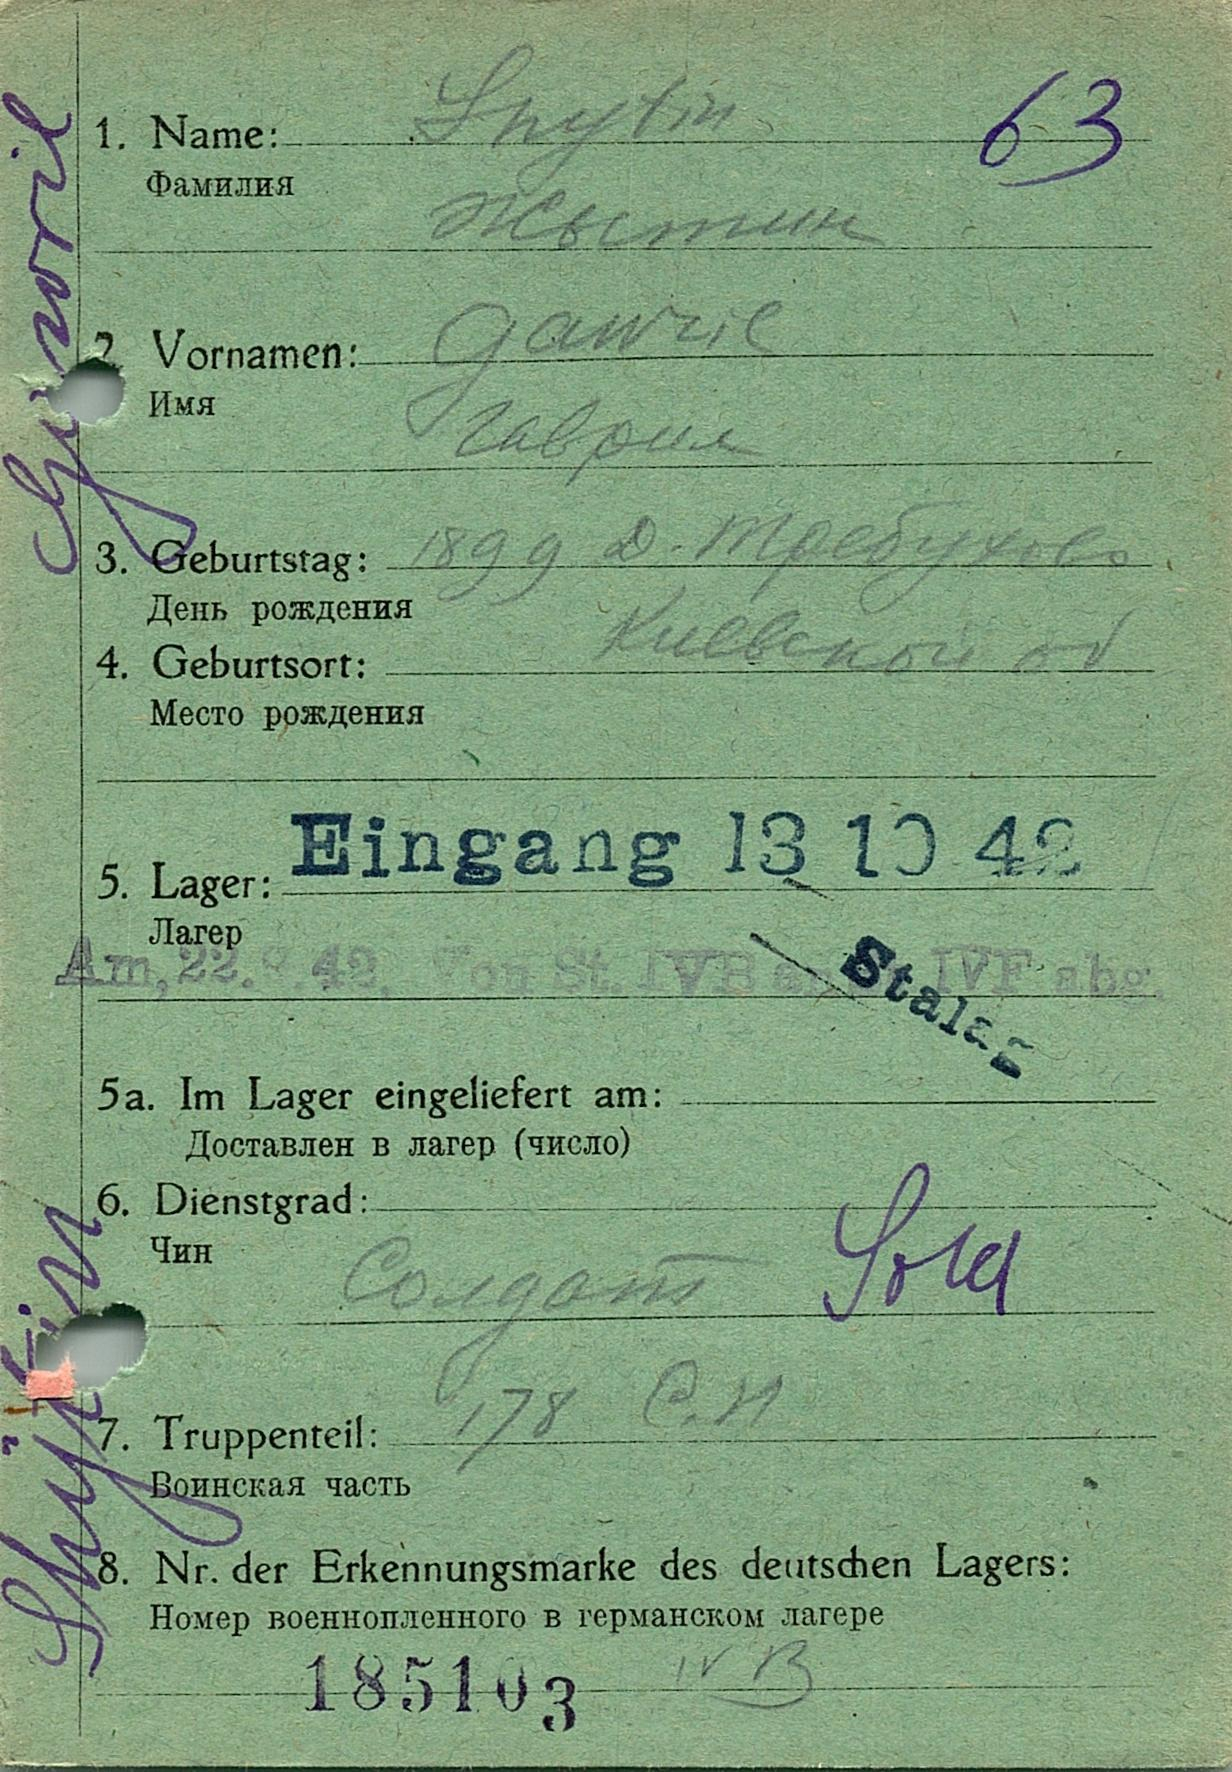 63
1. Name: Shytin
Фамилия
Жытин
2 Vornamen: Gawril
Имя
Гаврил
3. Geburtstag: 1899 д. Требухово
День рождения
Киевской об
4. Geburtsort:
Место рождения
Eingang 13 10 42
5. Lager:
Лагер
Am, 22. .42. Von St. IVB IVF abg.
Stalag
5a. Im Lager eingeliefert am:
Доставлен в лагер (число)
6. Dienstgrad:
Чин
Солдат Sold
7. Truppenteil: 178 С.П
Воинская часть
8. Nr. der Erkennungsmarke des deutschen Lagers:
Номер военнопленного в германском лагере
185103 IV B
Shytin Gawril